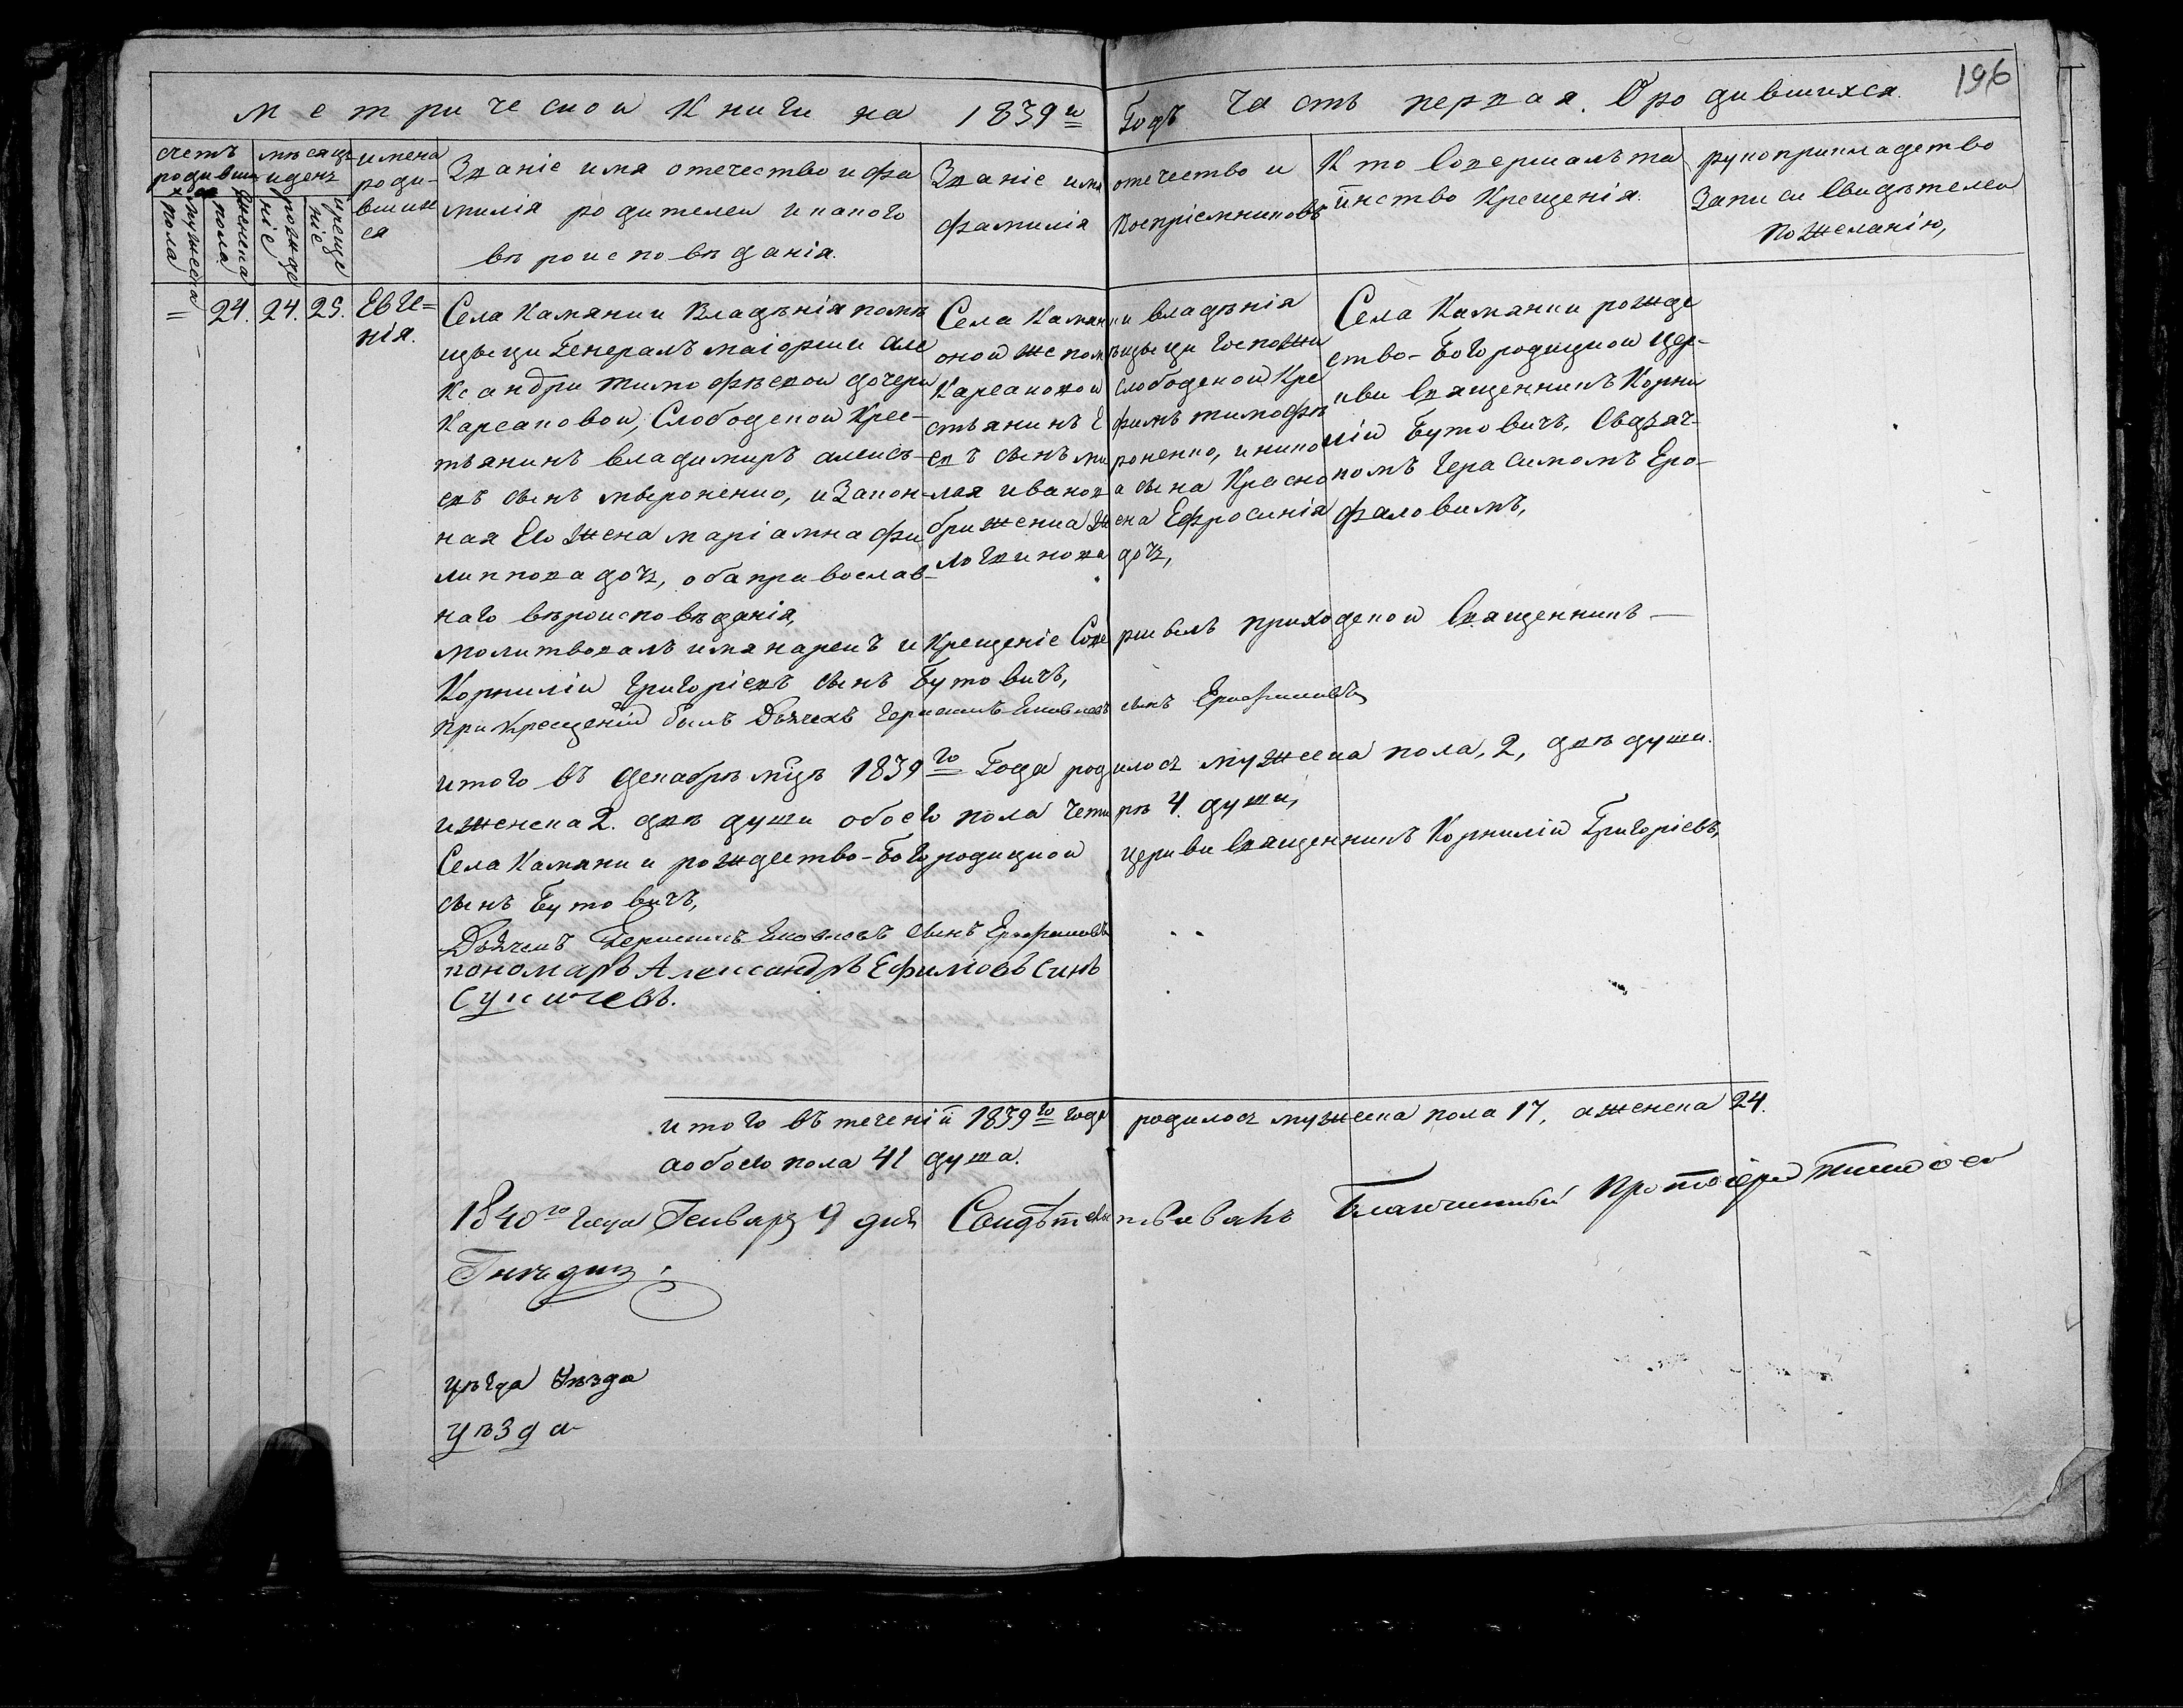 196
Метрической Книги на 1839й Годъ Часть первая. О родившихся.
счетъ родившихся
мужеска пола
женска пола
мѣсяцъ и день
рожденіе
крещеніе
имена родившихся
Званіе имя отечество и фа
милія родителей и какого
вѣроисповѣданія.
Званіе имя отечество и
фамилія Воспріемниковъ
Кто Совершалъ та
инство Крещенія.
рукоприкладство
Записи Свидѣтелей
по желанію,
= 24. 24. 25. Евге=
нія.
Села Камянки Владѣнія помѣ
щыци Генералъ маіорши але
ксандри тимофѣевой дочери
Карсаковой, Слободской Крес-
тьянинъ владимиръ алексѣ-
евъ сынъ мыроненко, и Закон-
ная Его жена маріамна фи
липпова дочь, оба православ-
наго вѣроисповѣданія,
Села Камянки владѣнія
оной же помѣщыци госпожи
Карсаковой Слободской Кре
стьянинъ Ефимъ тимофѣ
евъ сынъ мироненко, и нико
лая иванова сына Красно
брижепка жена Ефросинія
логвинова дочь,
Села Камянки рожде
ство-Богородицкой Цер-
кви Священникъ Корни
лій Бутовичъ, Съ дьяч-
комъ герасимомъ Еро-
фаловимъ,
молитвовалъ имя нарекъ и Крещеніе Совершылъ приходской Священникъ —
Корнилій григоріевъ сынъ Бутовичъ,
При Крещеніи былъ Дьячекъ Герасимъ сынъ
итого въ декабрѣ мцѣ 1839го Года родилось мужеска пола, 2, двѣ души.
и женска 2. двѣ души обоего пола четирѣ 4. души,
Села Камянки рождество-Богородицкой церкви Священникъ Корнилій Григоріевъ
сынъ Бутовичъ,
Дьячекъ Герасимъ сынъ
пономаръ Александръ Ефимовъ Синъ
итого въ теченіи 1839го года родилось мужеска пола 17, а женска 24.
а обоего пола 41 душа.
1840го года Генваря 9 дня Свидѣтельствовалъ Благочинный Протоіерей
уѣзда Уѣзда
уѣзда